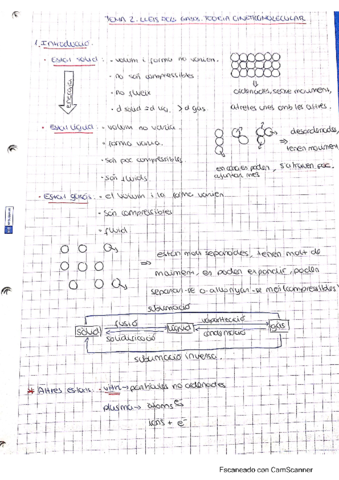 TEMA 2. LLEIS DELS GASOS. TEORIA CINETICOMOLECULAR
1. Introducció
- Estat sòlid : · volum i forma no varien.
· no són compressibles
· no flueix
· d sòlid > d líq. > d gas.
ordenades, sense moviment,
alteres unes amb les altres.
Energia
- Estat líquid : · volum no varia.
· forma varia.
· són poc compressibles
· són fluids
desordenades,
tenen moviment
s'atreuen poc.
- Estat gasós : · el volum i la forma varien
· són compressibles
· fluid
⇒ estan molt separades, tenen molt de
moviment, es poden expandir, poden
separar-se o allunyar-se més (compressibles)
sublimació
fusió
vaporització
sòlid
líquid
gas
solidificació
condensació
sublimació inversa.
* Altres estats : - vitri → partícules no ordenades
plasma → àtoms e-
ions + e-
Escaneado con CamScanner